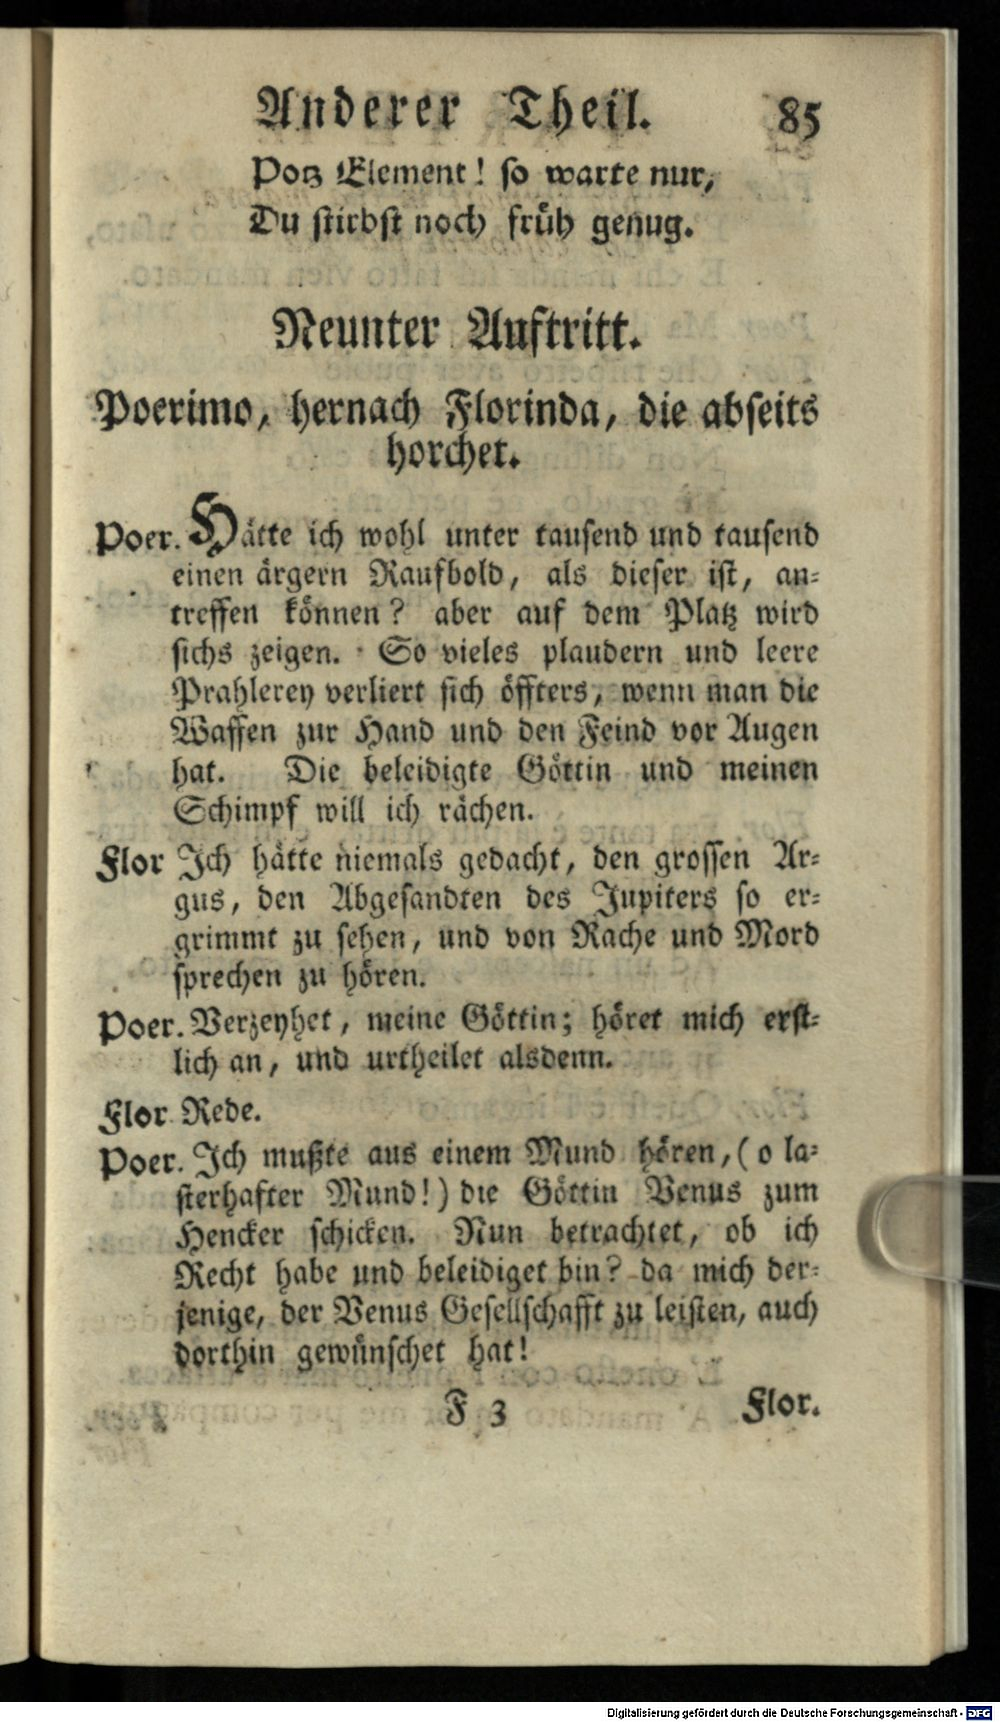 Anderer Theil. 85
Potz Element! so warte nur,
Du stirbst noch früh genug.
Neunter Auftritt.
Poerimo, hernach Florinda, die abseits
horchet.
Poer. Hätte ich wohl unter tausend und tausend
einen ärgern Raufbold, als dieser ist, an-
treffen können? aber auf dem Platz wird
sichs zeigen. So vieles plaudern und leere
Prahlerey verliert sich öffters, wenn man die
Waffen zur Hand und den Feind vor Augen
hat. Die beleidigte Göttin und meinen
Schimpf will ich rächen.
Flor Ich hätte niemals gedacht, den grossen Ar-
gus, den Abgesandten des Jupiters so er-
grimmt zu sehen, und von Rache und Mord
sprechen zu hören.
Poer. Verzeyhet, meine Göttin; höret mich erst-
lich an, und urtheilet alsdenn.
Flor Rede.
Poer. Ich mußte aus einem Mund hören, (o la-
sterhafter Mund!) die Göttin Venus zum
Hencker schicken. Nun betrachtet, ob ich
Recht habe und beleidiget bin? da mich der-
jenige, der Venus Gesellschafft zu leisten, auch
dorthin gewünschet hat!
F 3 Flor.
Digitalisierung gefördert durch die Deutsche Forschungsgemeinschaft - DFG